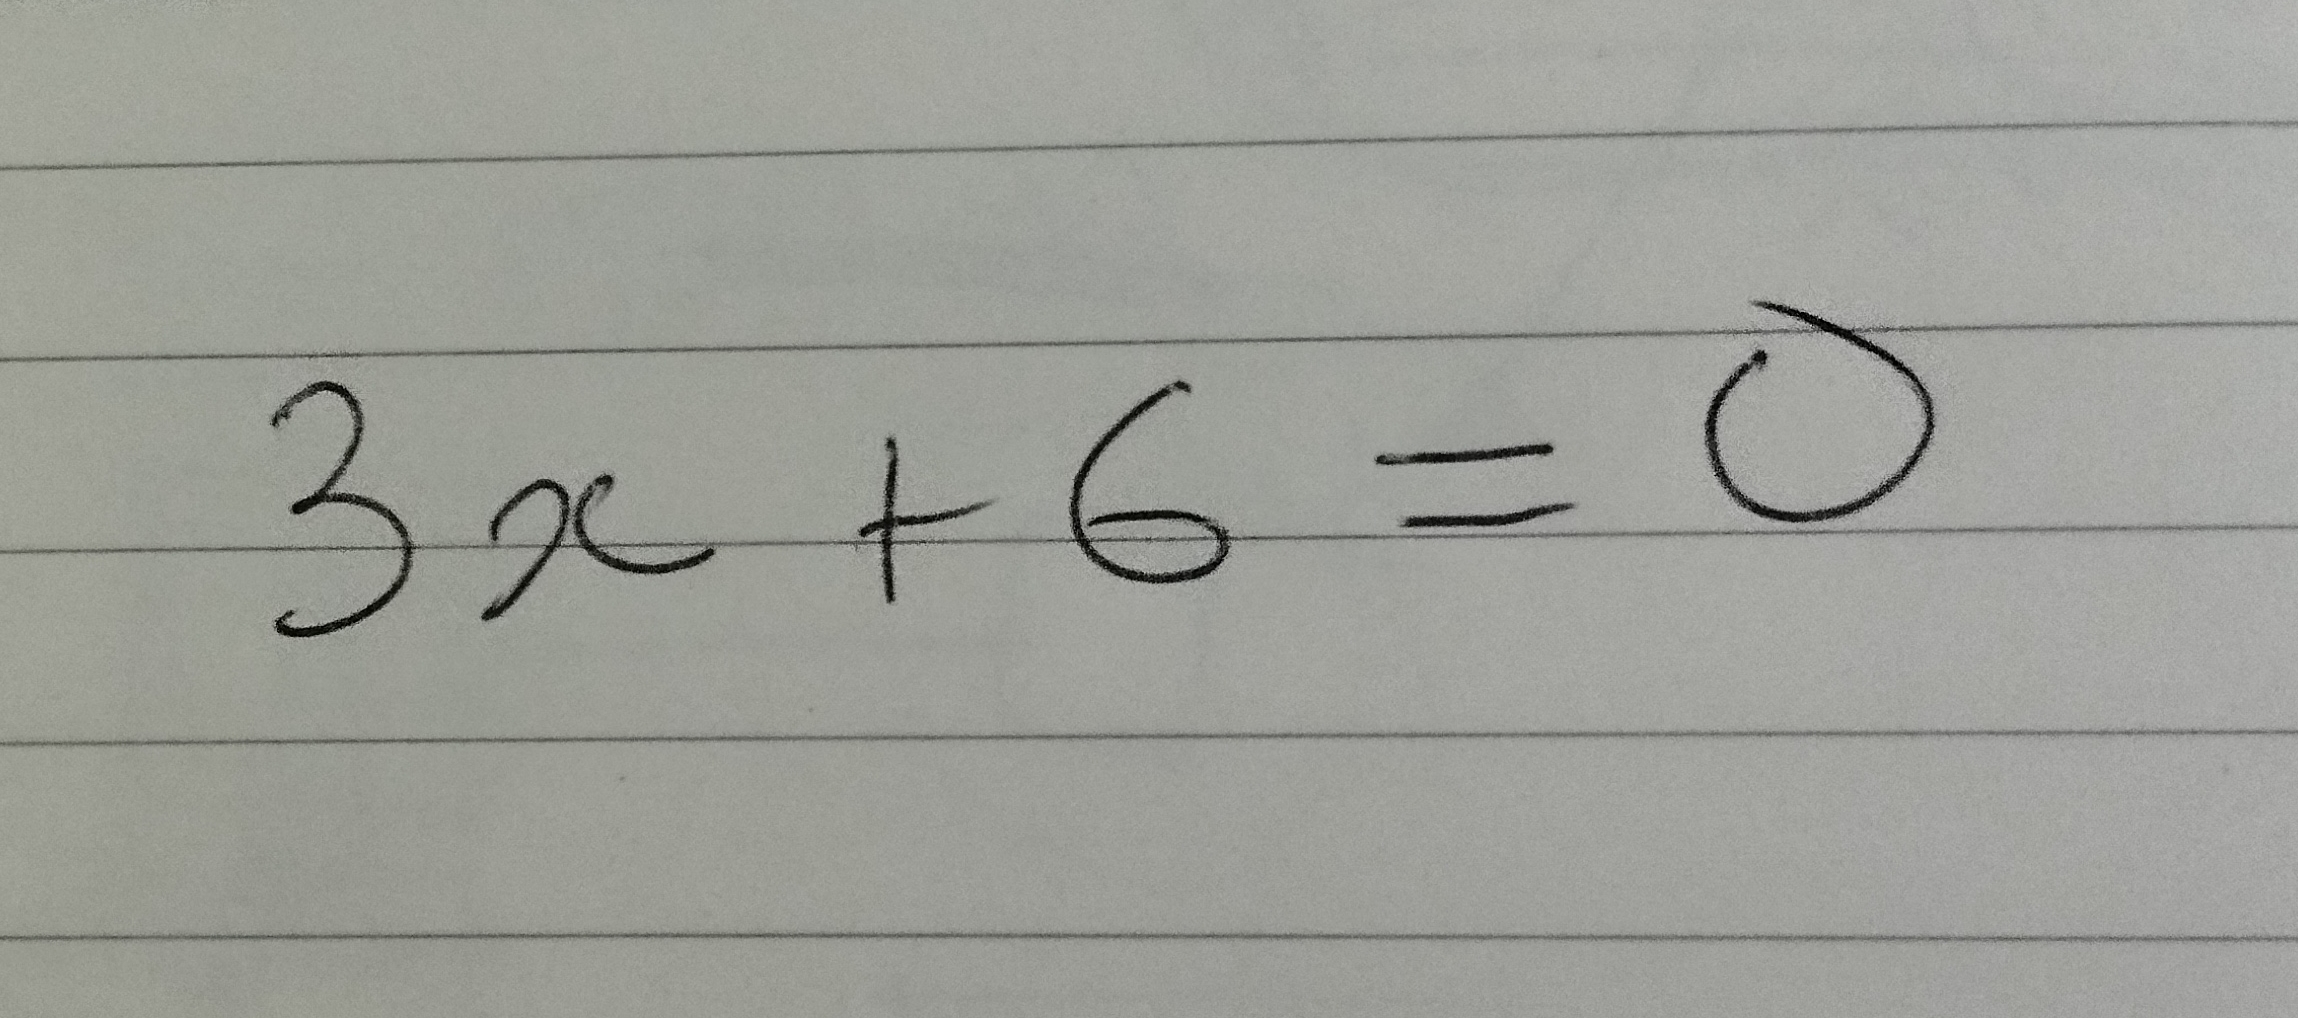 3x + 6 = 0